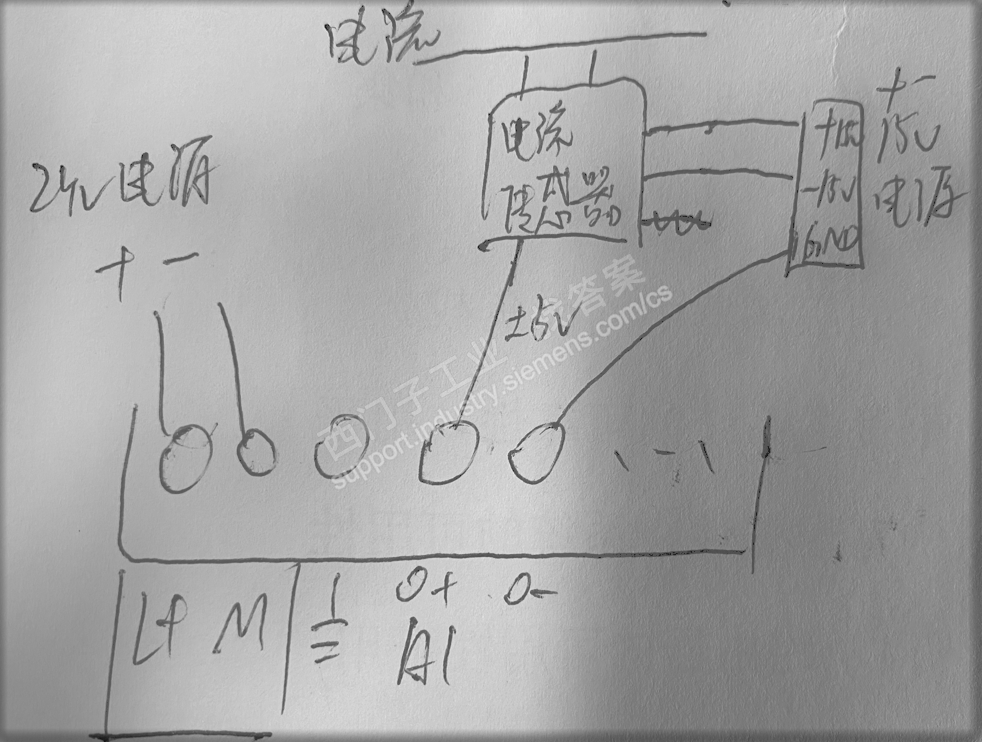 电流
+-
15V
电源
+15V
-15V
GND
电流
传感器
24V电源
+ -
±5V
西门子工业 找答案
support.industry.siemens.com/cs
L+ M
0+ 0-
AI